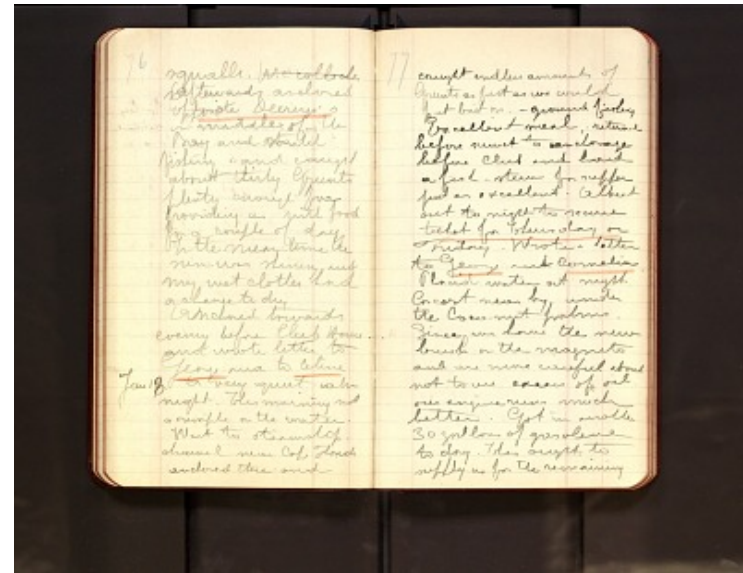 76
squalls.
afterwards anchored
in middle of the
Bay and started
fishing and caught
about thirty Grunts
plenty enough for
providing us with food
for a couple of days
In the mean time the
sun was shining and
my wet clothes had
a chance to dry
Anchored towards
evening before Club House
and wrote letter to
Jan 18 A very quiet calm
night. This morning not
a ripple on the water.
Went to steamship
channel near Cap
anchored there and
77
caught endless amounts of
Grunts as fast as we could
put bait on - ground fishing
Excellent meal, returned
before sunset to anchorage
before Club and had
a fish-stew for supper
just as excellent. Albert
out to night to secure
ticket for Thursday or
Friday Wrote a letter
to and Cornelia
Placid water at night.
Concert near by, under
the Cocoanut palms.
Since we have the new
brush on the magneto
and are more careful about
not to use excess of oil
our engine runs much
better. Got in another
30 gallons of gasolene
to day. This ought to
supply us for the remaining